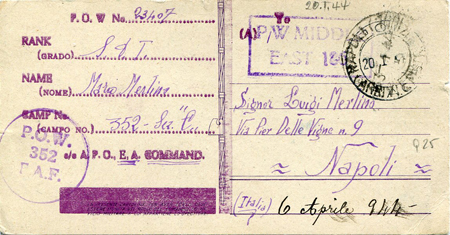 P.O.W No. 23407
RANK
(GRADO) S.T.
NAME
(NOME) Mario Merlino
CAMP No.
(CAMPO NO.) 352 - Sez "C"
c/o A.P.O., E.A. COMMAND.
P.O.W.
352
E.A.F.
20.I.44
To
(A)
P/W MIDDLE
EAST
NAPOLI
20
Signor Luigi Merlino
Via Pier Delle Vigne n. 9
≈ Napoli ≈
(Italia) 6 Aprile 944
925